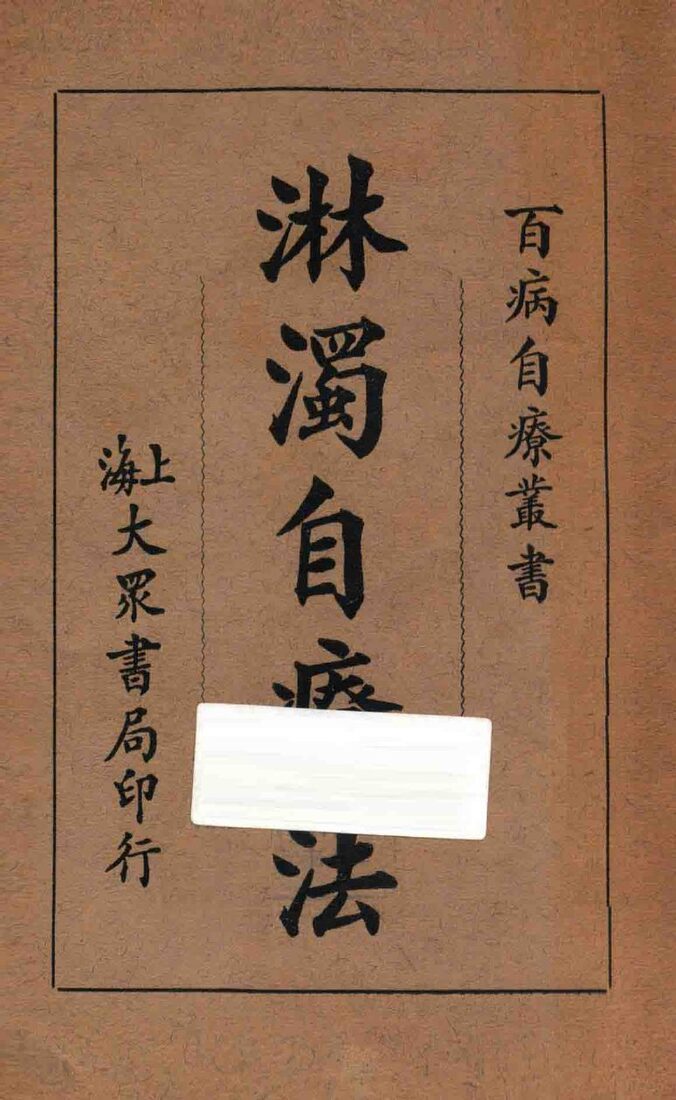 百病自療叢書
淋濁自療法
上海大眾書局印行